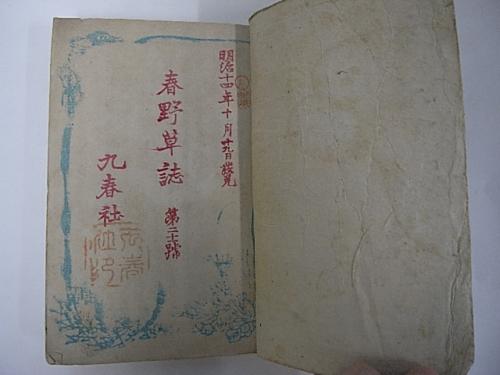 明治十四年十月廿九日発兌
春野草誌 第二十一號
九春社